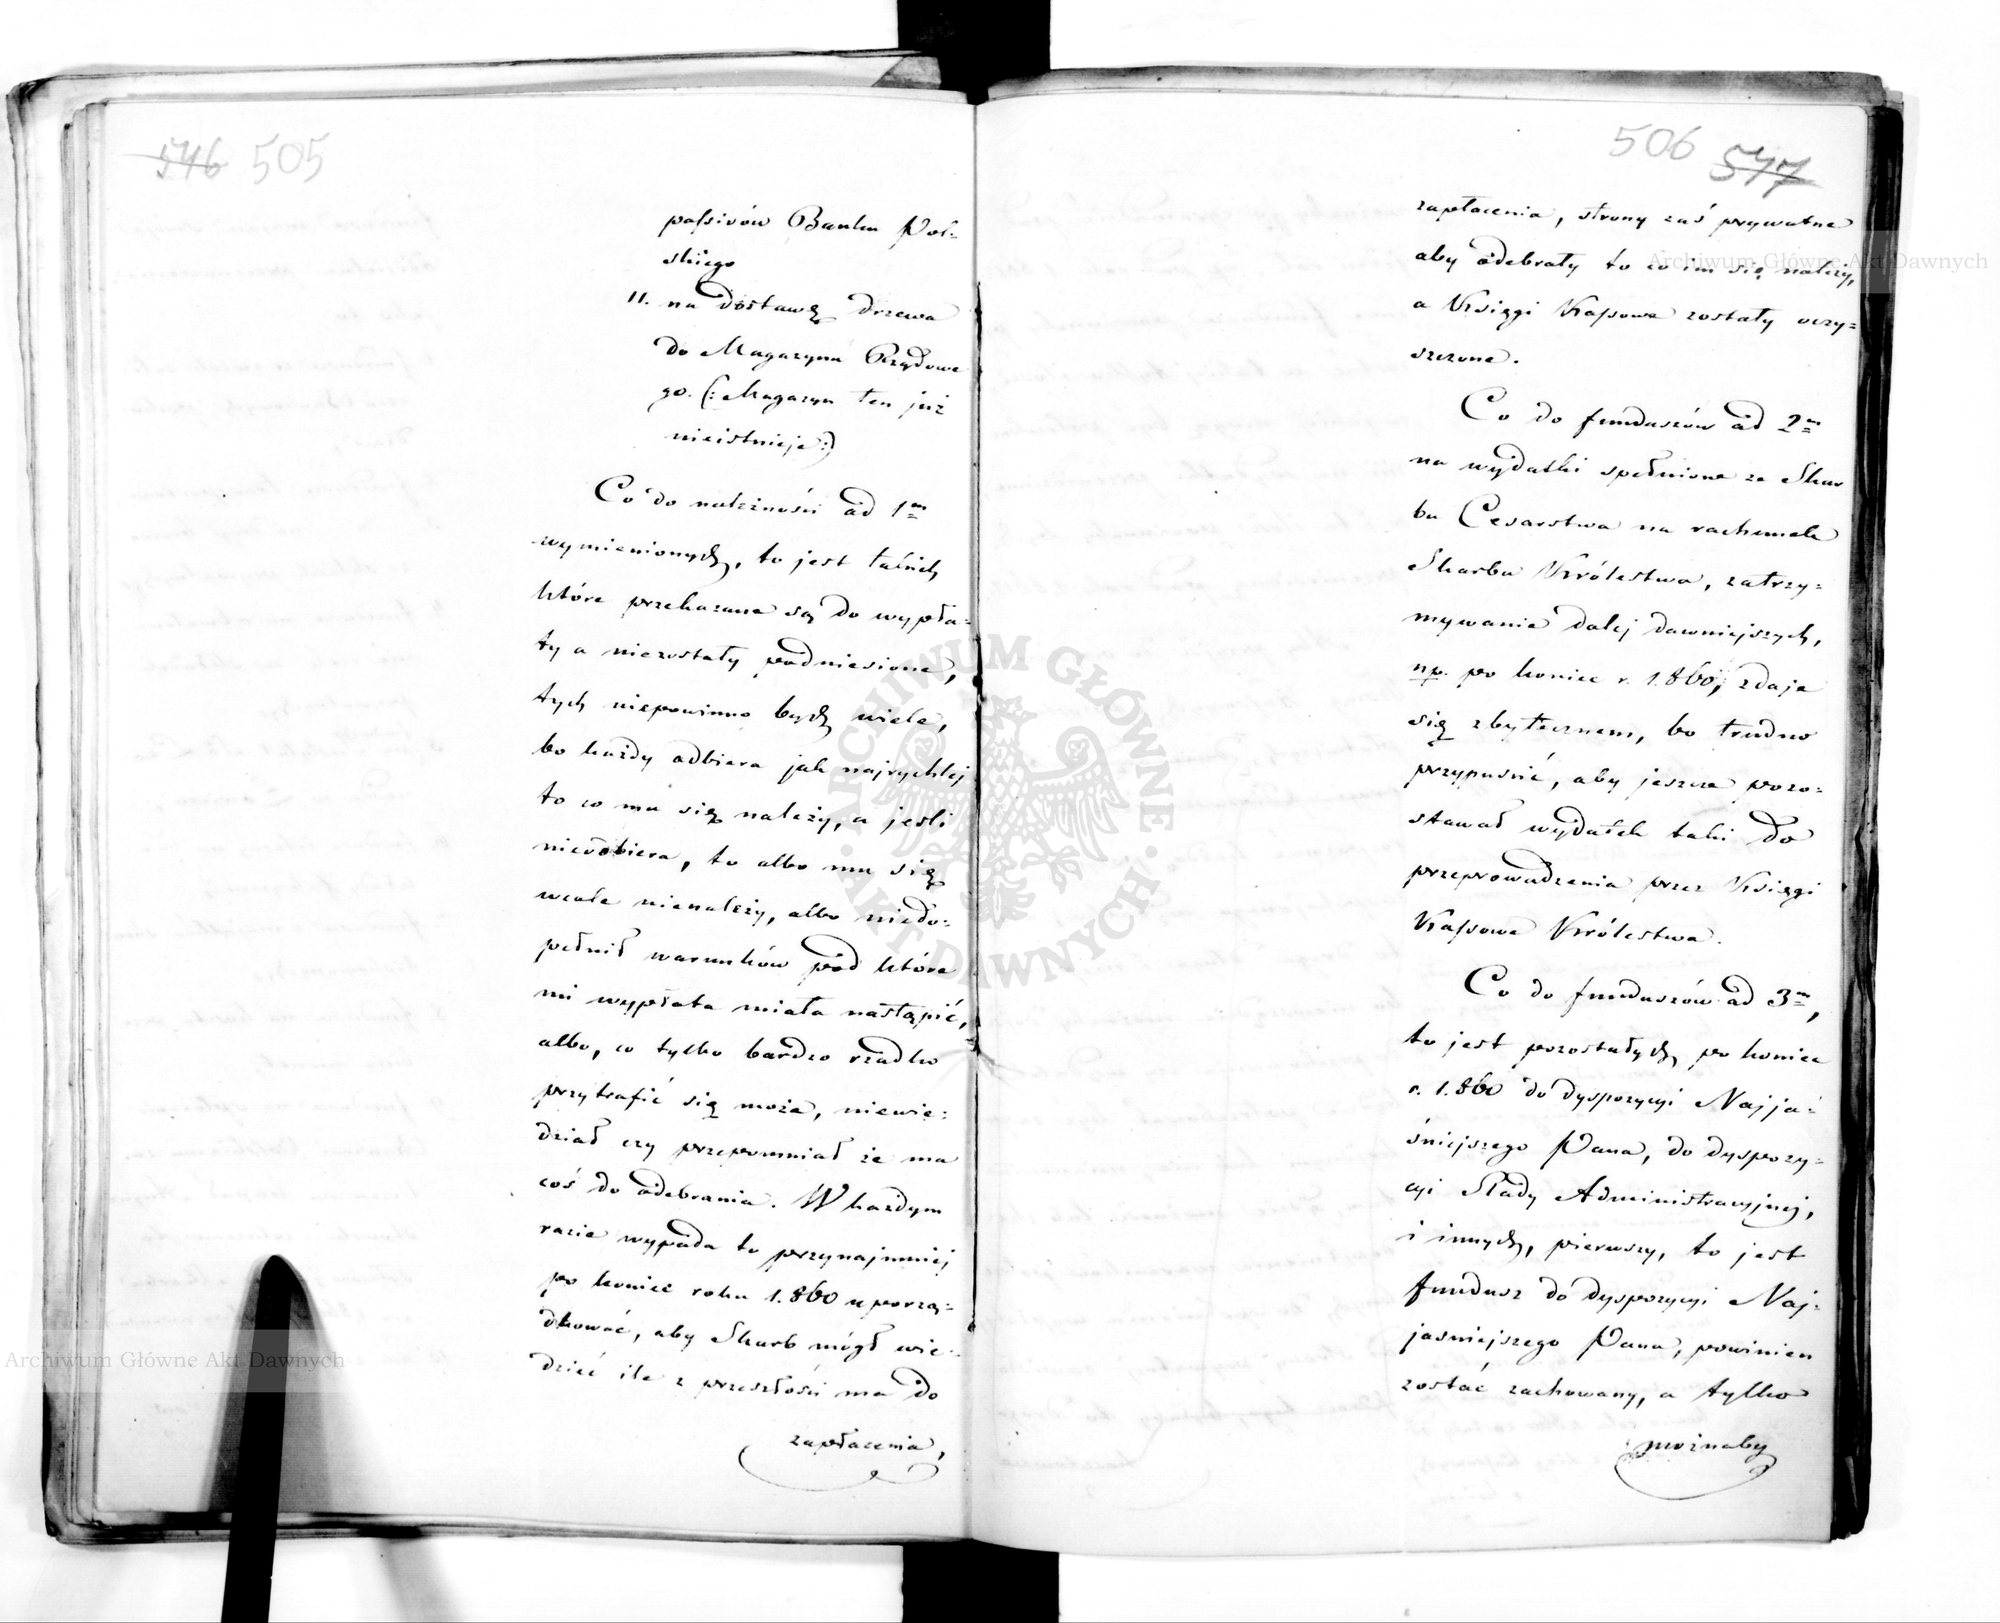 546 505
passivów Banku Pol=
skiego
11. na dostawę drzewa
do Magazynu Rządowe
go. (: Magazyn ten już
nieistnieje :)
Co do należności ad 1m
wymienionych, to jest takich
które przekazane są do wypła=
ty a niezostały podniesione,
tych niepowinno bydź wiele,
bo każdy odbiera jak najrychlej
to co mu się należy, a jeśli
nieodbiera, to albo mu się
wcale nienależy, albo niedo=
pełnił warunków pod które
mi wypłata miała nastąpić,
albo, co tylko bardzo rzadko
przytrafić się może, niewie=
dział czy przepomniał że ma
coś do odebrania. W każdym
razie wypada to przynajmniej
po koniec roku 1.860 uporzą=
dkować, aby Skarb mógł wie=
dzieć ile z przeszłości ma do
zapłacenia,
506 577
zapłacenia, strony zaś prywatne
aby odebrały to co im się należy,
a Księgi Kassowe zostały oczy=
szczone.
Co do funduszów ad 2m
na wydatki spełnione ze Skar
bu Cesarstwa na rachunek
Skarbu Królestwa, zatrzy=
mywanie dalej dawniejszych,
np. po koniec r. 1.860, zdaje
się zbytecznem, bo trudno
przypuścić, aby jeszcze pozo=
stawał wydatek taki do
przeprowadzenia przez Księgi
Kassowe Królestwa.
Co do funduszów ad 3m,
to jest pozostałych po koniec
r. 1.860 do dyspozycyi Najja=
śniejszego Pana, do dyspozy=
cyi Rady Administracyjnej,
i innych, pierwszy, to jest
fundusz do dyspozycyi Naj=
jaśniejszego Pana, powinien
zostać zachowany, a tylko
możnaby
Archiwum Główne Akt Dawnych
Archiwum Główne Akt Dawnych
ARCHIWUM GŁÓWNE AKT DAWNYCH